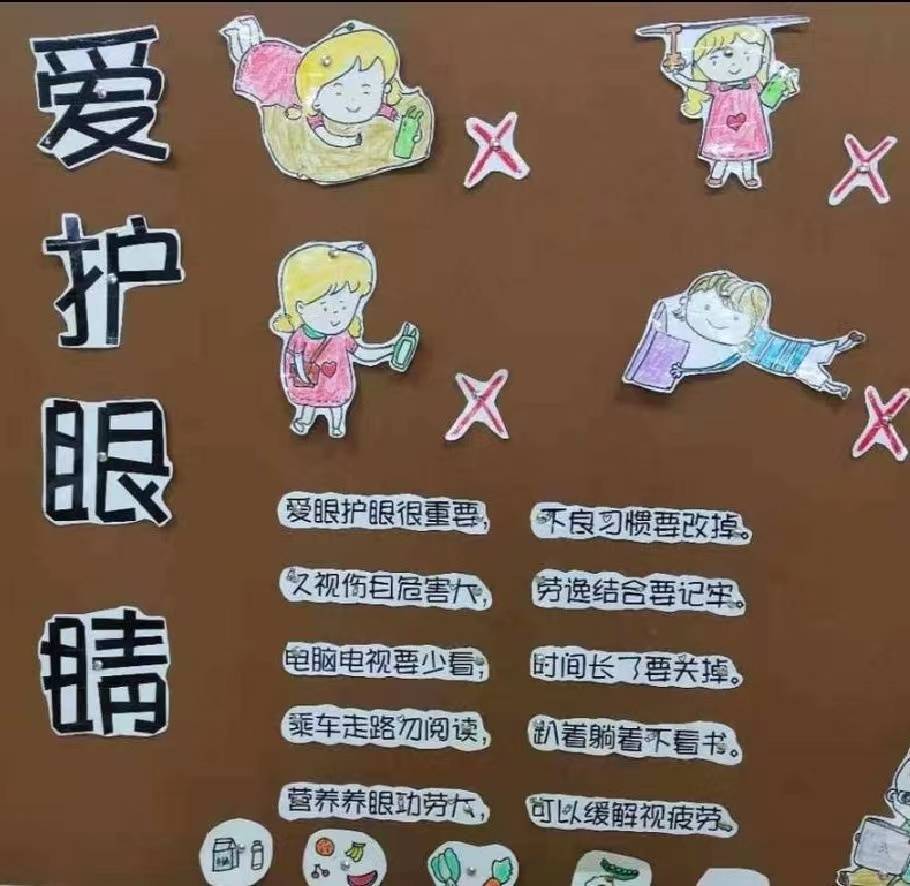 爱护眼睛
爱眼护眼很重要,
不良习惯要改掉。
久视伤目危害大,
劳逸结合要记牢。
电脑电视要少看,
时间长了要关掉。
乘车走路勿阅读,
趴着躺着不看书。
营养养眼功劳大,
可以缓解视疲劳。